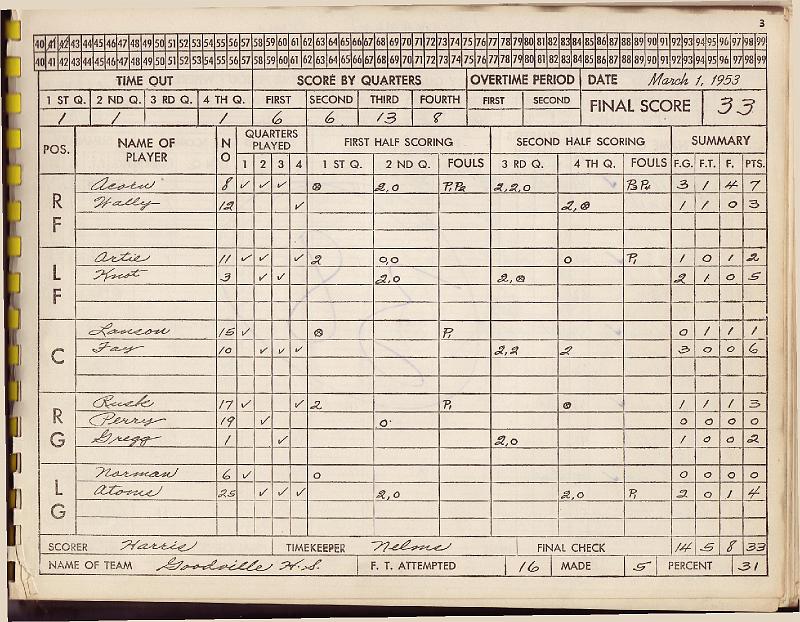 3
40 41 42 43 44 45 46 47 48 49 50 51 52 53 54 55 56 57 58 59 60 61 62 63 64 65 66 67 68 69 70 71 72 73 74 75 76 77 78 79 80 81 82 83 84 85 86 87 88 89 90 91 92 93 94 95 96 97 98 99
40 41 42 43 44 45 46 47 48 49 50 51 52 53 54 55 56 57 58 59 60 61 62 63 64 65 66 67 68 69 70 71 72 73 74 75 76 77 78 79 80 81 82 83 84 85 86 87 88 89 90 91 92 93 94 95 96 97 98 99
TIME OUT SCORE BY QUARTERS OVERTIME PERIOD DATE March 1, 1953
1 ST Q. 2 ND Q. 3 RD Q. 4 TH Q. FIRST SECOND THIRD FOURTH FIRST SECOND FINAL SCORE 33
1 1 1 6 6 13 8
POS. NAME OF PLAYER NO QUARTERS PLAYED FIRST HALF SCORING SECOND HALF SCORING SUMMARY
1 2 3 4 1 ST Q. 2 ND Q. FOULS 3 RD Q. 4 TH Q. FOULS F.G. F.T. F. PTS.
RF
Acorn 8 ✓ ✓ ✓ ⊗ 2,0 P1P2 2,2,0 P3P4 3 1 4 7
Wally 12 ✓ 2,⊗ 1 1 0 3
LF
Artie 11 ✓ ✓ ✓ 2 0,0 0 P1 1 0 1 2
Knot 3 ✓ ✓ 2,0 2,⊗ 2 1 0 5
C
Lanson 15 ✓ ⊗ P1 0 1 1 1
Fay 10 ✓ ✓ ✓ 2,2 2 3 0 0 6
RG
Rusk 17 ✓ ✓ 2 P1 ⊗ 1 1 1 3
Perry 19 ✓ 0 0 0 0 0
Gregg 1 ✓ 2,0 1 0 0 2
LG
Norman 6 ✓ 0 0 0 0 0
Atoms 25 ✓ ✓ ✓ 2,0 2,0 P1 2 0 1 4
SCORER Harris TIMEKEEPER Nelms FINAL CHECK 14 5 8 33
NAME OF TEAM Goodville H.S. F. T. ATTEMPTED 16 MADE 5 PERCENT 31